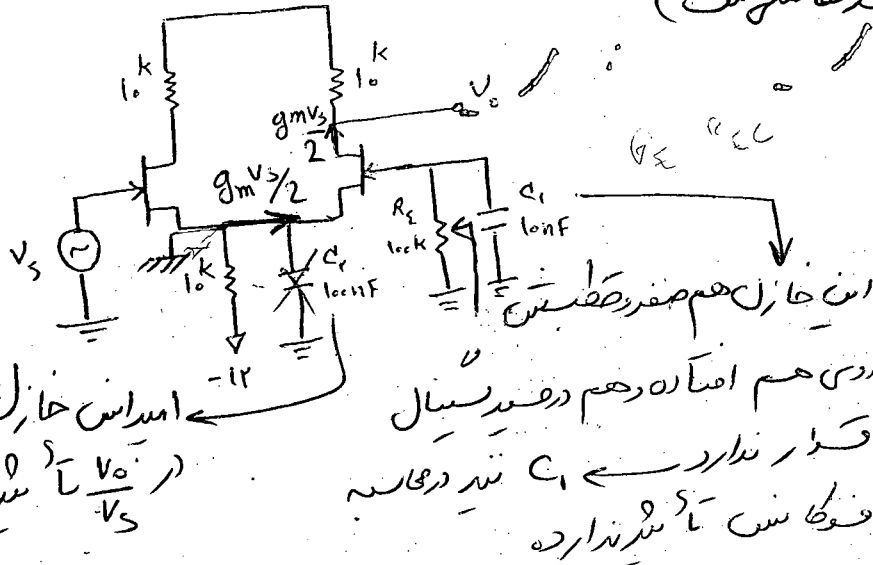 10k
10k
V₀
gmVs/2
gmVs/2
Vs
10k
-12
C₂
100nF
R٤
100k
C₁
10nF
این خازن هم صفر و قطبش
روی هم افتاده و هم در مسیر سیگنال
قرار ندارد ← C₁ نیز در محاسبه
فرکانس تأثیر ندارد
این خازن
در V₀/Vs